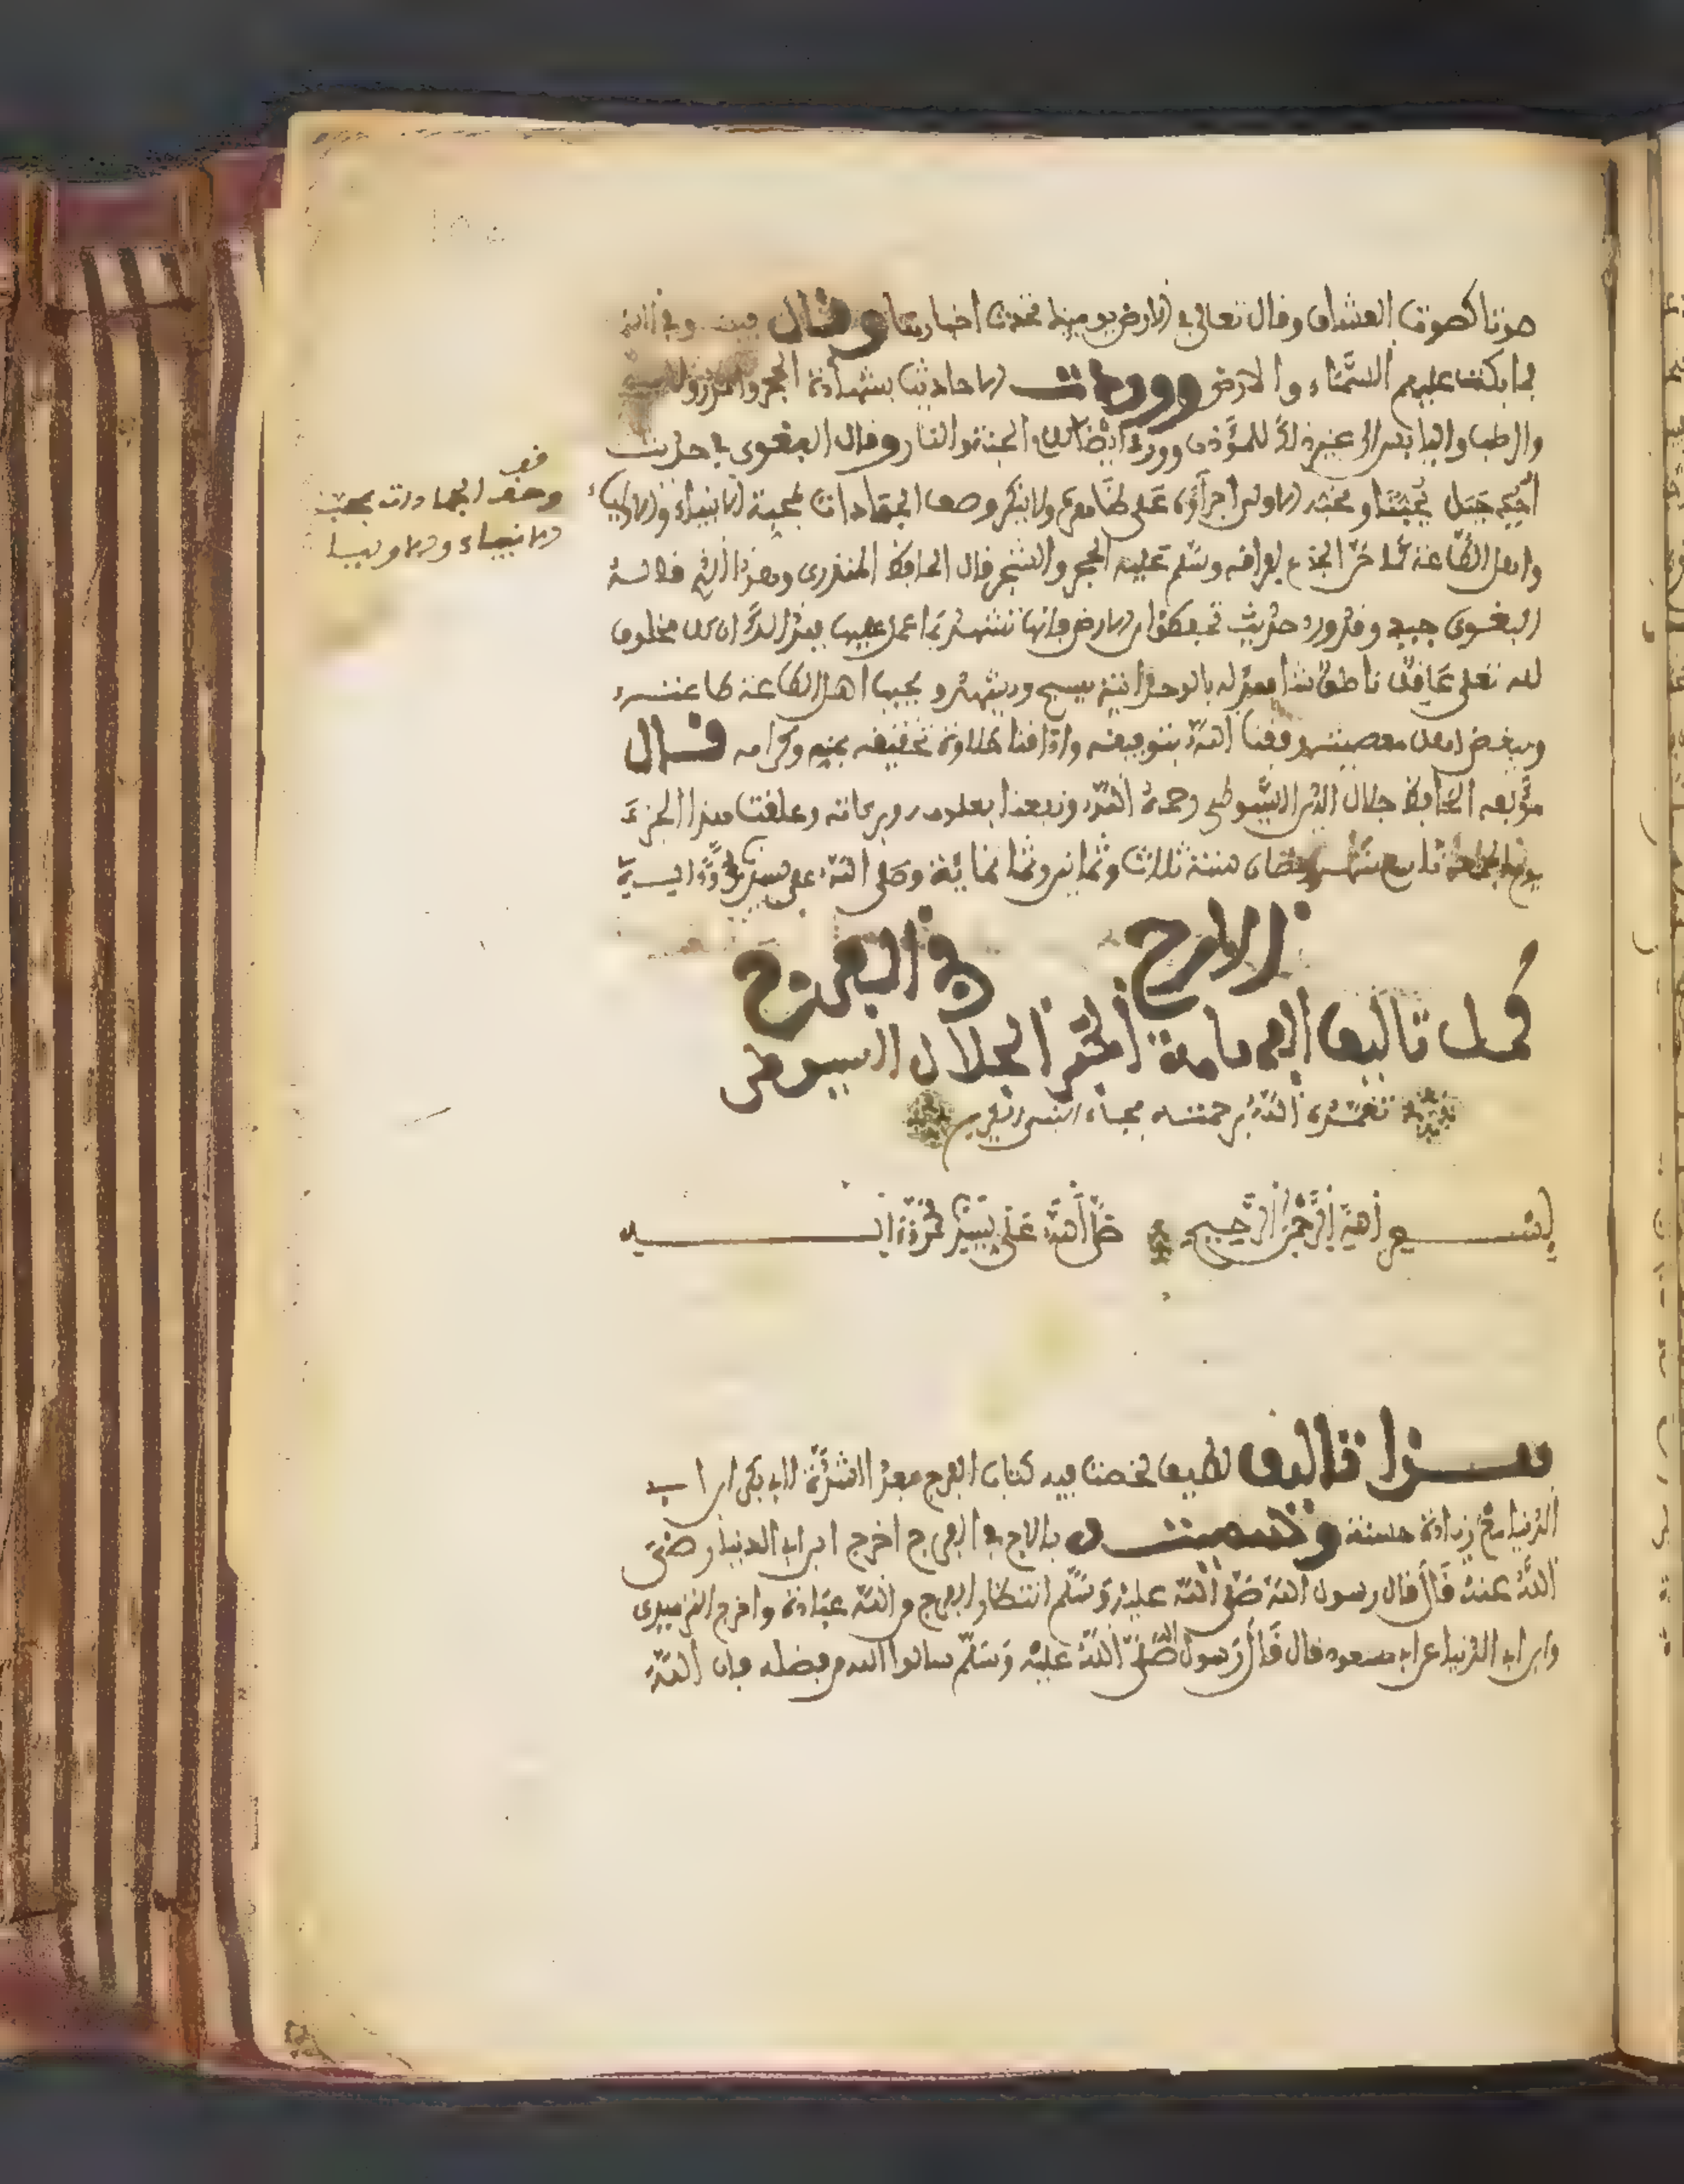 صوتا كصوت العشار وقال تعالى في الارض يومئذ تحدث اخبارها وقال
فما بكت عليهم السماء والارض ووردت الاحاديث بشهادة الحجر والمدر
والرطب واليابس الى غير ذلك للمؤذن وورد ايضا والجنة والنار وقال البغوي في حديث
احد جبل يحبنا ونحبه الاولى اجراؤه على ظاهره ولا ينكر وصف الجمادات بمحبة الانبياء والاولياء
واهل الطاعة كما حن الجذع لفراقه وسلم عليه الحجر والشجر قال الحافظ المنذري وهذا الذي قاله
البغوي جيد وقد ورد حديث تحفظوا من الارض فانها تشهد بما عمل عليها فهذا ان كل مخلوق
لله تعلى عاقل ناطق شاهد له بالوحدانية يسبح ويشهد ويحب اهل الطاعة
ويبغض اهل معصيته وفقنا الله بتوفيقه واذاقنا حلاوة تحقيقه بمنه وكرامه قال
مؤلفه الحافظ جلال الدين السيوطي رحمه الله ونفعنا بعلومه وبركاته وعلقت هذا الجزء
يوم تاسع شهر رمضان سنة ثلاث وثمانين وثمانمائة وصلى الله على سيدنا محمد وآله
الارج في الفرج
كمل تاليف الجلال السيوطي
تغمده الله برحمته بجاه النبي
بسم الله الرحمن الرحيم صلى الله على سيدنا محمد وآله
هذا تاليف لطيف لخصت فيه كتاب الفرج بعد الشدة لابي بكر ابن ابي
الدنيا مع زيادة حسنة وسميته بالارج في الفرج اخرج ابن ابي الدنيا رضي
الله عنه قال قال رسول الله صلى الله عليه وسلم انتظار الفرج من الله عبادة واخرج الترمذي
وابن ابي الدنيا عن ابن مسعود قال قال رسول الله صلى الله عليه وسلم سلوا الله من فضله فان الله
قف
وصف الجمادات بمحبة
الانبياء والاولياء